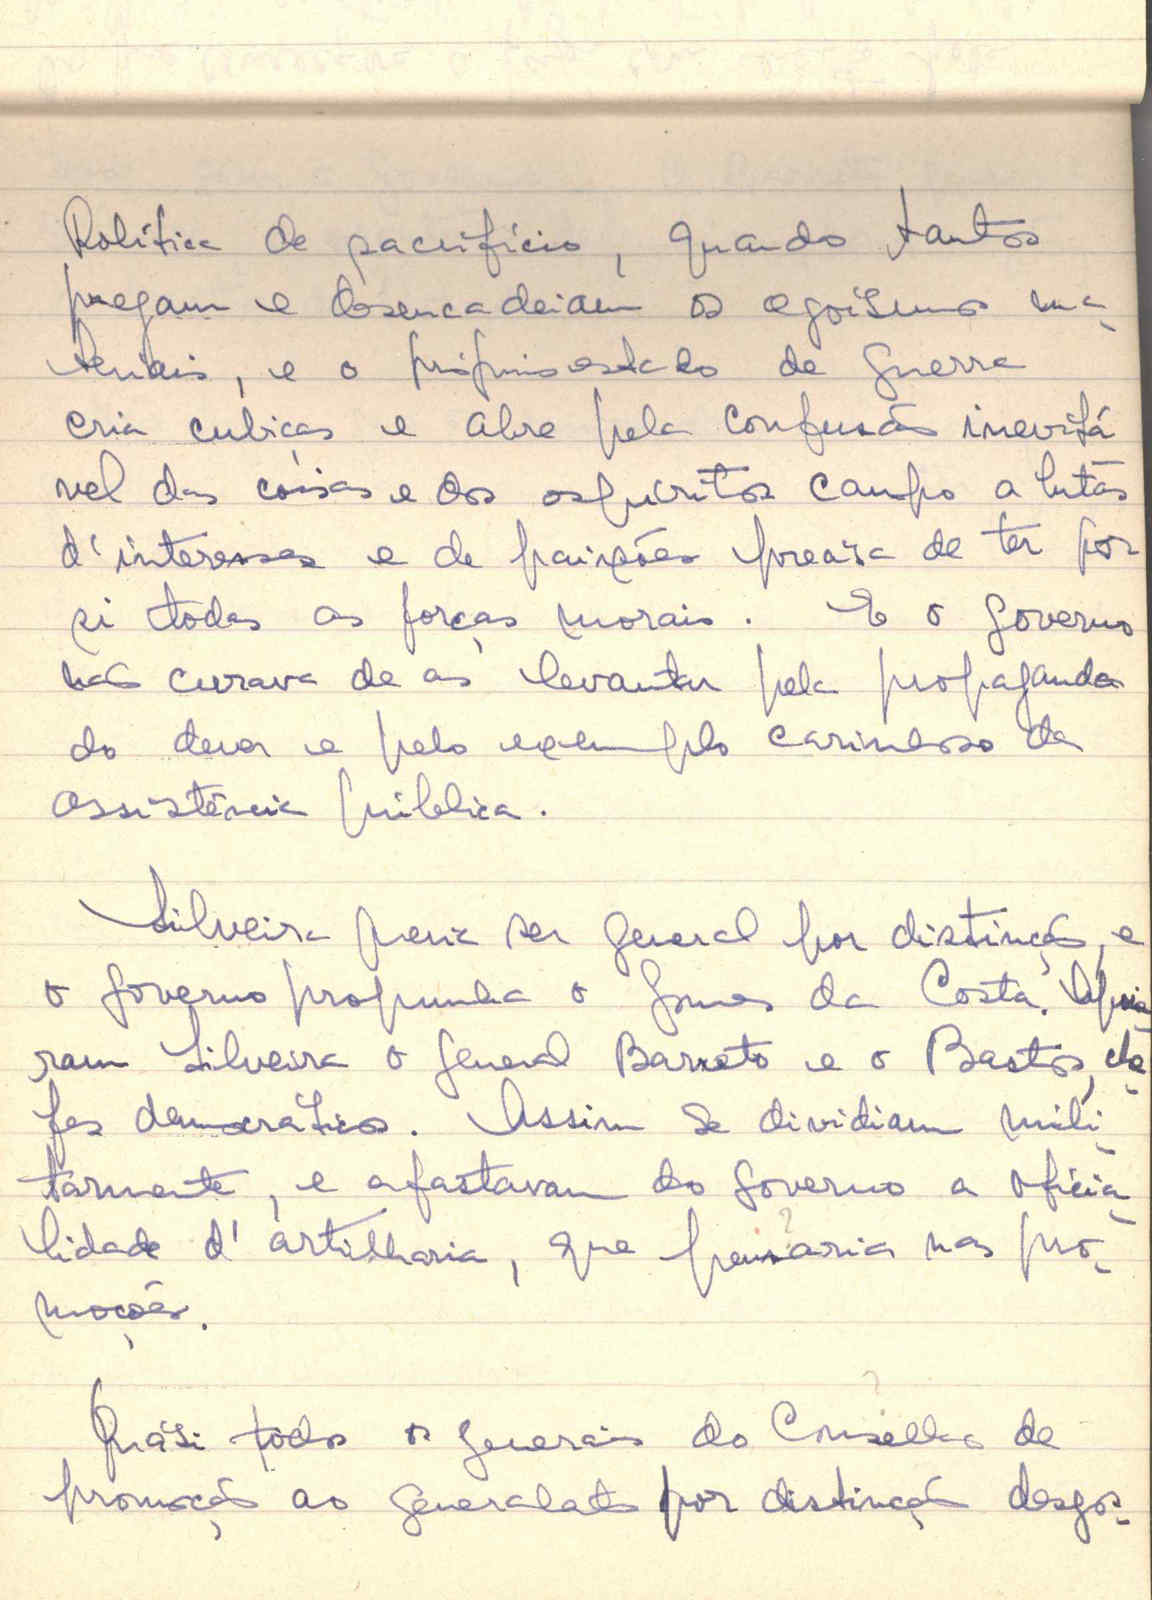 Política de sacrifício, quando tantos
pregam e desencadeiam os egoísmos ma-
teriais, e o próprio estado de guerra
cria cubiças e abre pela confusão inevitá
vel das coisas e dos espíritos campo a lutas
d'interesses e de paixões precisa de ter por
si todas as forças morais. E o governo
não curava de as levantar pela propaganda
do dever e pelo exemplo carinhoso da
assistência pública.
Silveira queria ser general por distinção, e
o governo propunha o Gomes da Costa.
ram Silveira o general Barreto e o Bastos, che-
fes democráticos. Assim se dividiam mili-
tarmente, e afastavam do governo a oficia-
lidade d'artilharia, que pensaria nas pro-
moções.
Quási todos os generais do Conselho de
promoção ao generalato por distinção desgos-